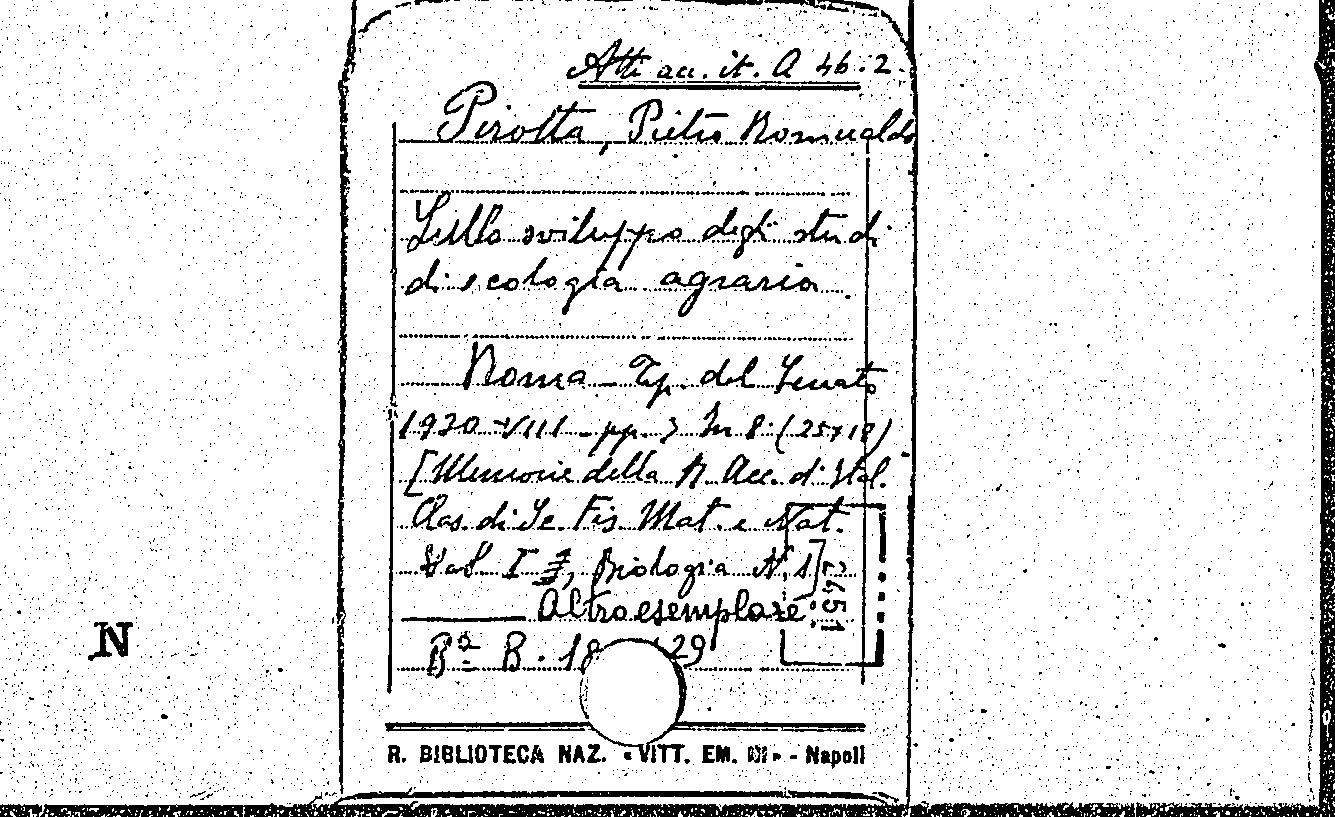 Atti acc. it. A 46.2.
Pirotta, Pietro Romualdo
Sullo sviluppo degli studi
di ecologia agraria.
Roma - Tip. del Senato
1930 - VIII - pp. In 8° (25x18)
[Memorie della R. Acc. d'Ital.
Clas. di Sc. Fis. Mat. e Nat.
Vol I, Biologia N. 1]
Altro esemplare:
Bª B. 18 29
N
R. BIBLIOTECA NAZ. « VITT. EM. III » - Napoli